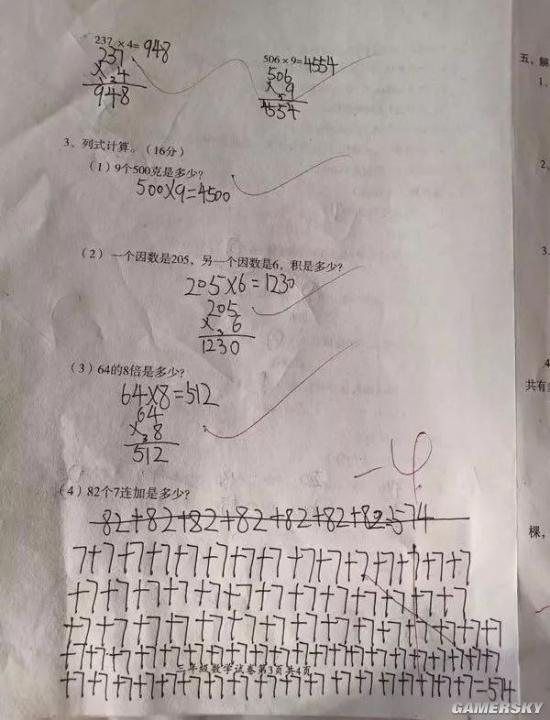 237×4=948
237
× 4
948
506×9=4554
506
× 9
4554
3、列式计算。(16分)
(1)9个500克是多少?
500×9=4500
(2)一个因数是205,另一个因数是6,积是多少?
205×6=1230
205
× 6
1230
(3)64的8倍是多少?
64×8=512
64
× 8
512
-4
(4)82个7连加是多少?
82+82+82+82+82+82+82=574
7+7+7+7+7+7+7+7+7+7+7+7+7+7+7
+7+7+7+7+7+7+7+7+7+7+7+7+7+7+7
+7+7+7+7+7+7+7+7+7+7+7+7+7+7+7+7+7
+7+7+7+7+7+7+7+7+7+7+7+7+7+7+7+7+7
三年级数学试卷第3页共4页
+7+7+7+7+7+7+7+7+7+7+7+7+7+7+7+7=574
五、解
1、
2、
3、
4
共有
棵,
GAMERSKY